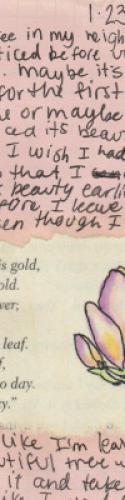 1.23
ee in my neigh
ticed before u
. maybe it's
for the first
e or maybe
ced its beau
I wish I had
o that I
s beauty earli
fore I leave
en though I
is gold,
old.
ver;
leaf.
f,
to day.
y."
like I'm lea
utiful tree w
it and take